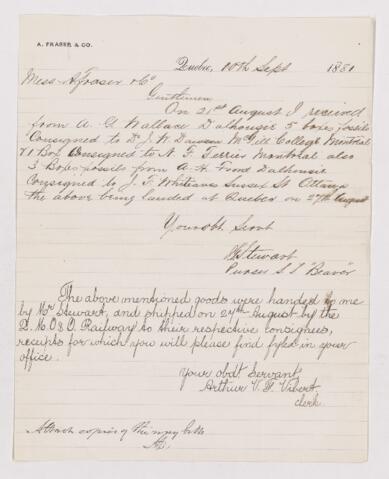 A. FRASER & CO.
Quebec, 10th Sept 1881
Mess A Fraser & Co
Gentlemen
On 21st August I received
from A. G. Wallace Dalhousie 5 boxes fossils
Consigned to Dr J. W. Dawson McGill College Montreal
1 Box Consigned to N. F. Ferrier Montreal also
3 Boxes fossils from A. H. Foord Dalhousie
Consigned to J. F. Whiteaves Sussex St Ottawa
the above being landed at Quebec on 27th August
Your obt Servt
Stewart
Purser S S "Beaver"
The above mentioned goods were handed to me
by Mr Stewart, and shipped on 27th August by the
Q. M. O & O. Railway to their respective consignees,
receipts for which you will please find fyled in your
office.
Your obdt Servant
Arthur V. Vibert
Clerk
Attach copies of shipping bills